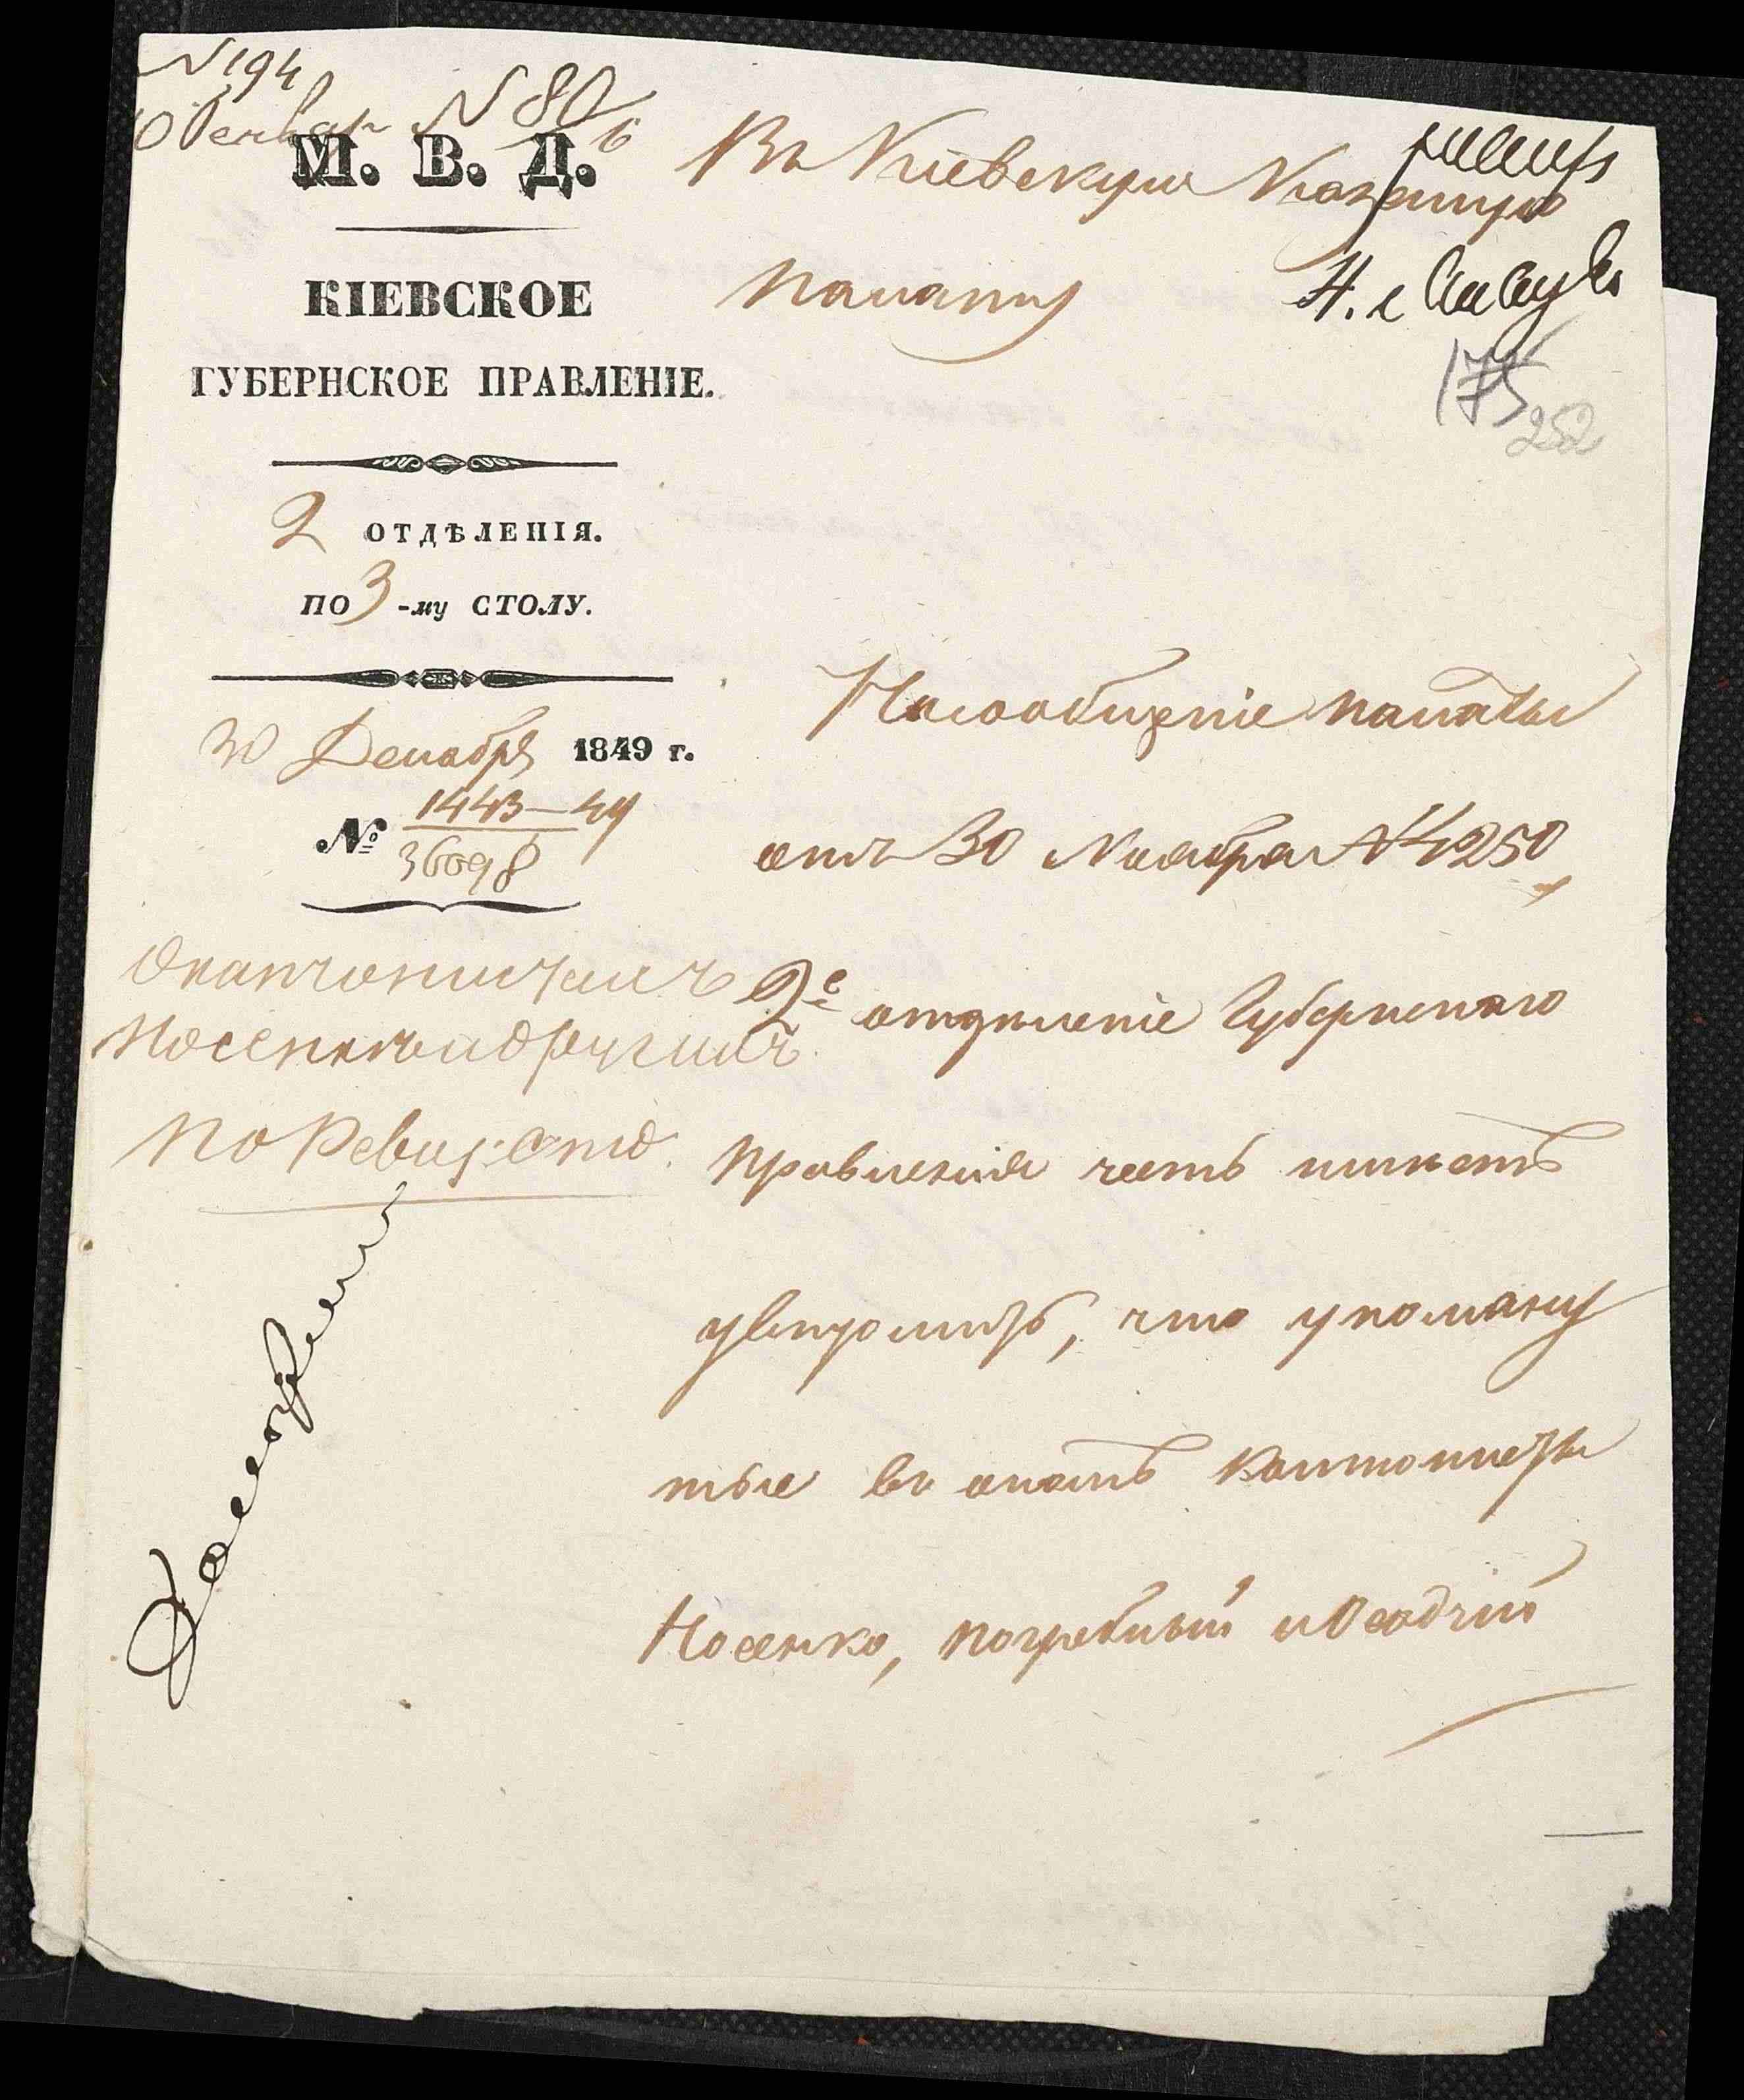 № 194
№ 80
М. В. Д.
КІЕВСКОЕ
ГУБЕРНСКОЕ ПРАВЛЕНІЕ.
2 ОТДѢЛЕНІЯ.
ПО 3-му СТОЛУ.
30 Декабря 1849 г.
№ 1443—49
36098
О кантонистахъ
Носенкѣ и другихъ
По Ревиз. отд.
Въ Кіевскую Казенную
Палату
175
252
На сообщеніе палаты
отъ 30 Ноября № 4250,
2е отдѣленіе Губернскаго
Правленія честь имѣетъ
увѣдомить, что упомяну
тые въ ономъ кантонисты
Носенко, Погребный и Осадчій